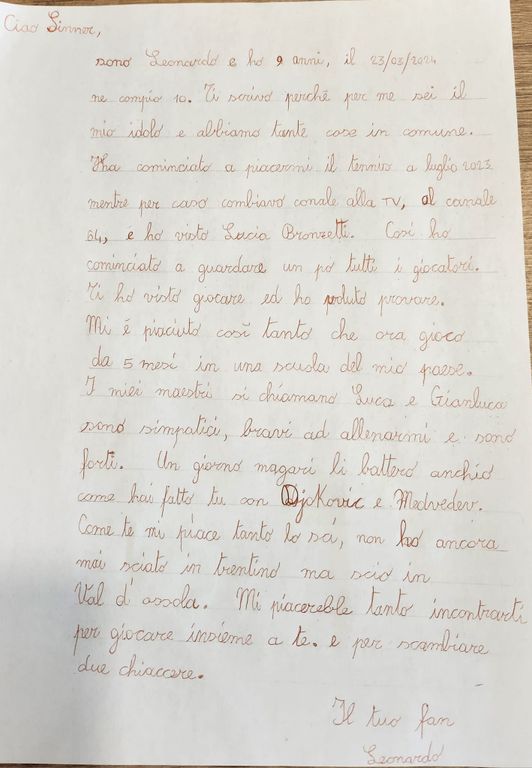 Ciao Sinner,
sono Leonardo e ho 9 anni, il 23/03/2024
ne compio 10. Ti scrivo perché per me sei il
mio idolo e abbiamo tante cose in comune.
Ha cominciato a piacermi il tennis a luglio 2023
mentre per caso cambiavo canale alla TV, al canale
64, e ho visto Lucia Bronzetti. Così ho
cominciato a guardare un pò tutti i giocatori.
Ti ho visto giocare ed ho voluto provare.
Mi è piaciuto così tanto che ora gioco
da 5 mesi in una scuola del mio paese.
I miei maestri si chiamano Luca e Gianluca
sono simpatici, bravi ad allenarmi e sono
forti. Un giorno magari li batterò anchio
come hai fatto tu con Djokovic e Medvedev.
Come te mi piace tanto lo sci, non ho ancora
mai sciato in trentino ma scio in
Val d'ossola. Mi piacerebbe tanto incontrarti
per giocare insieme a te. e per scambiare
due chiaccere.
Il tuo fan
Leonardo